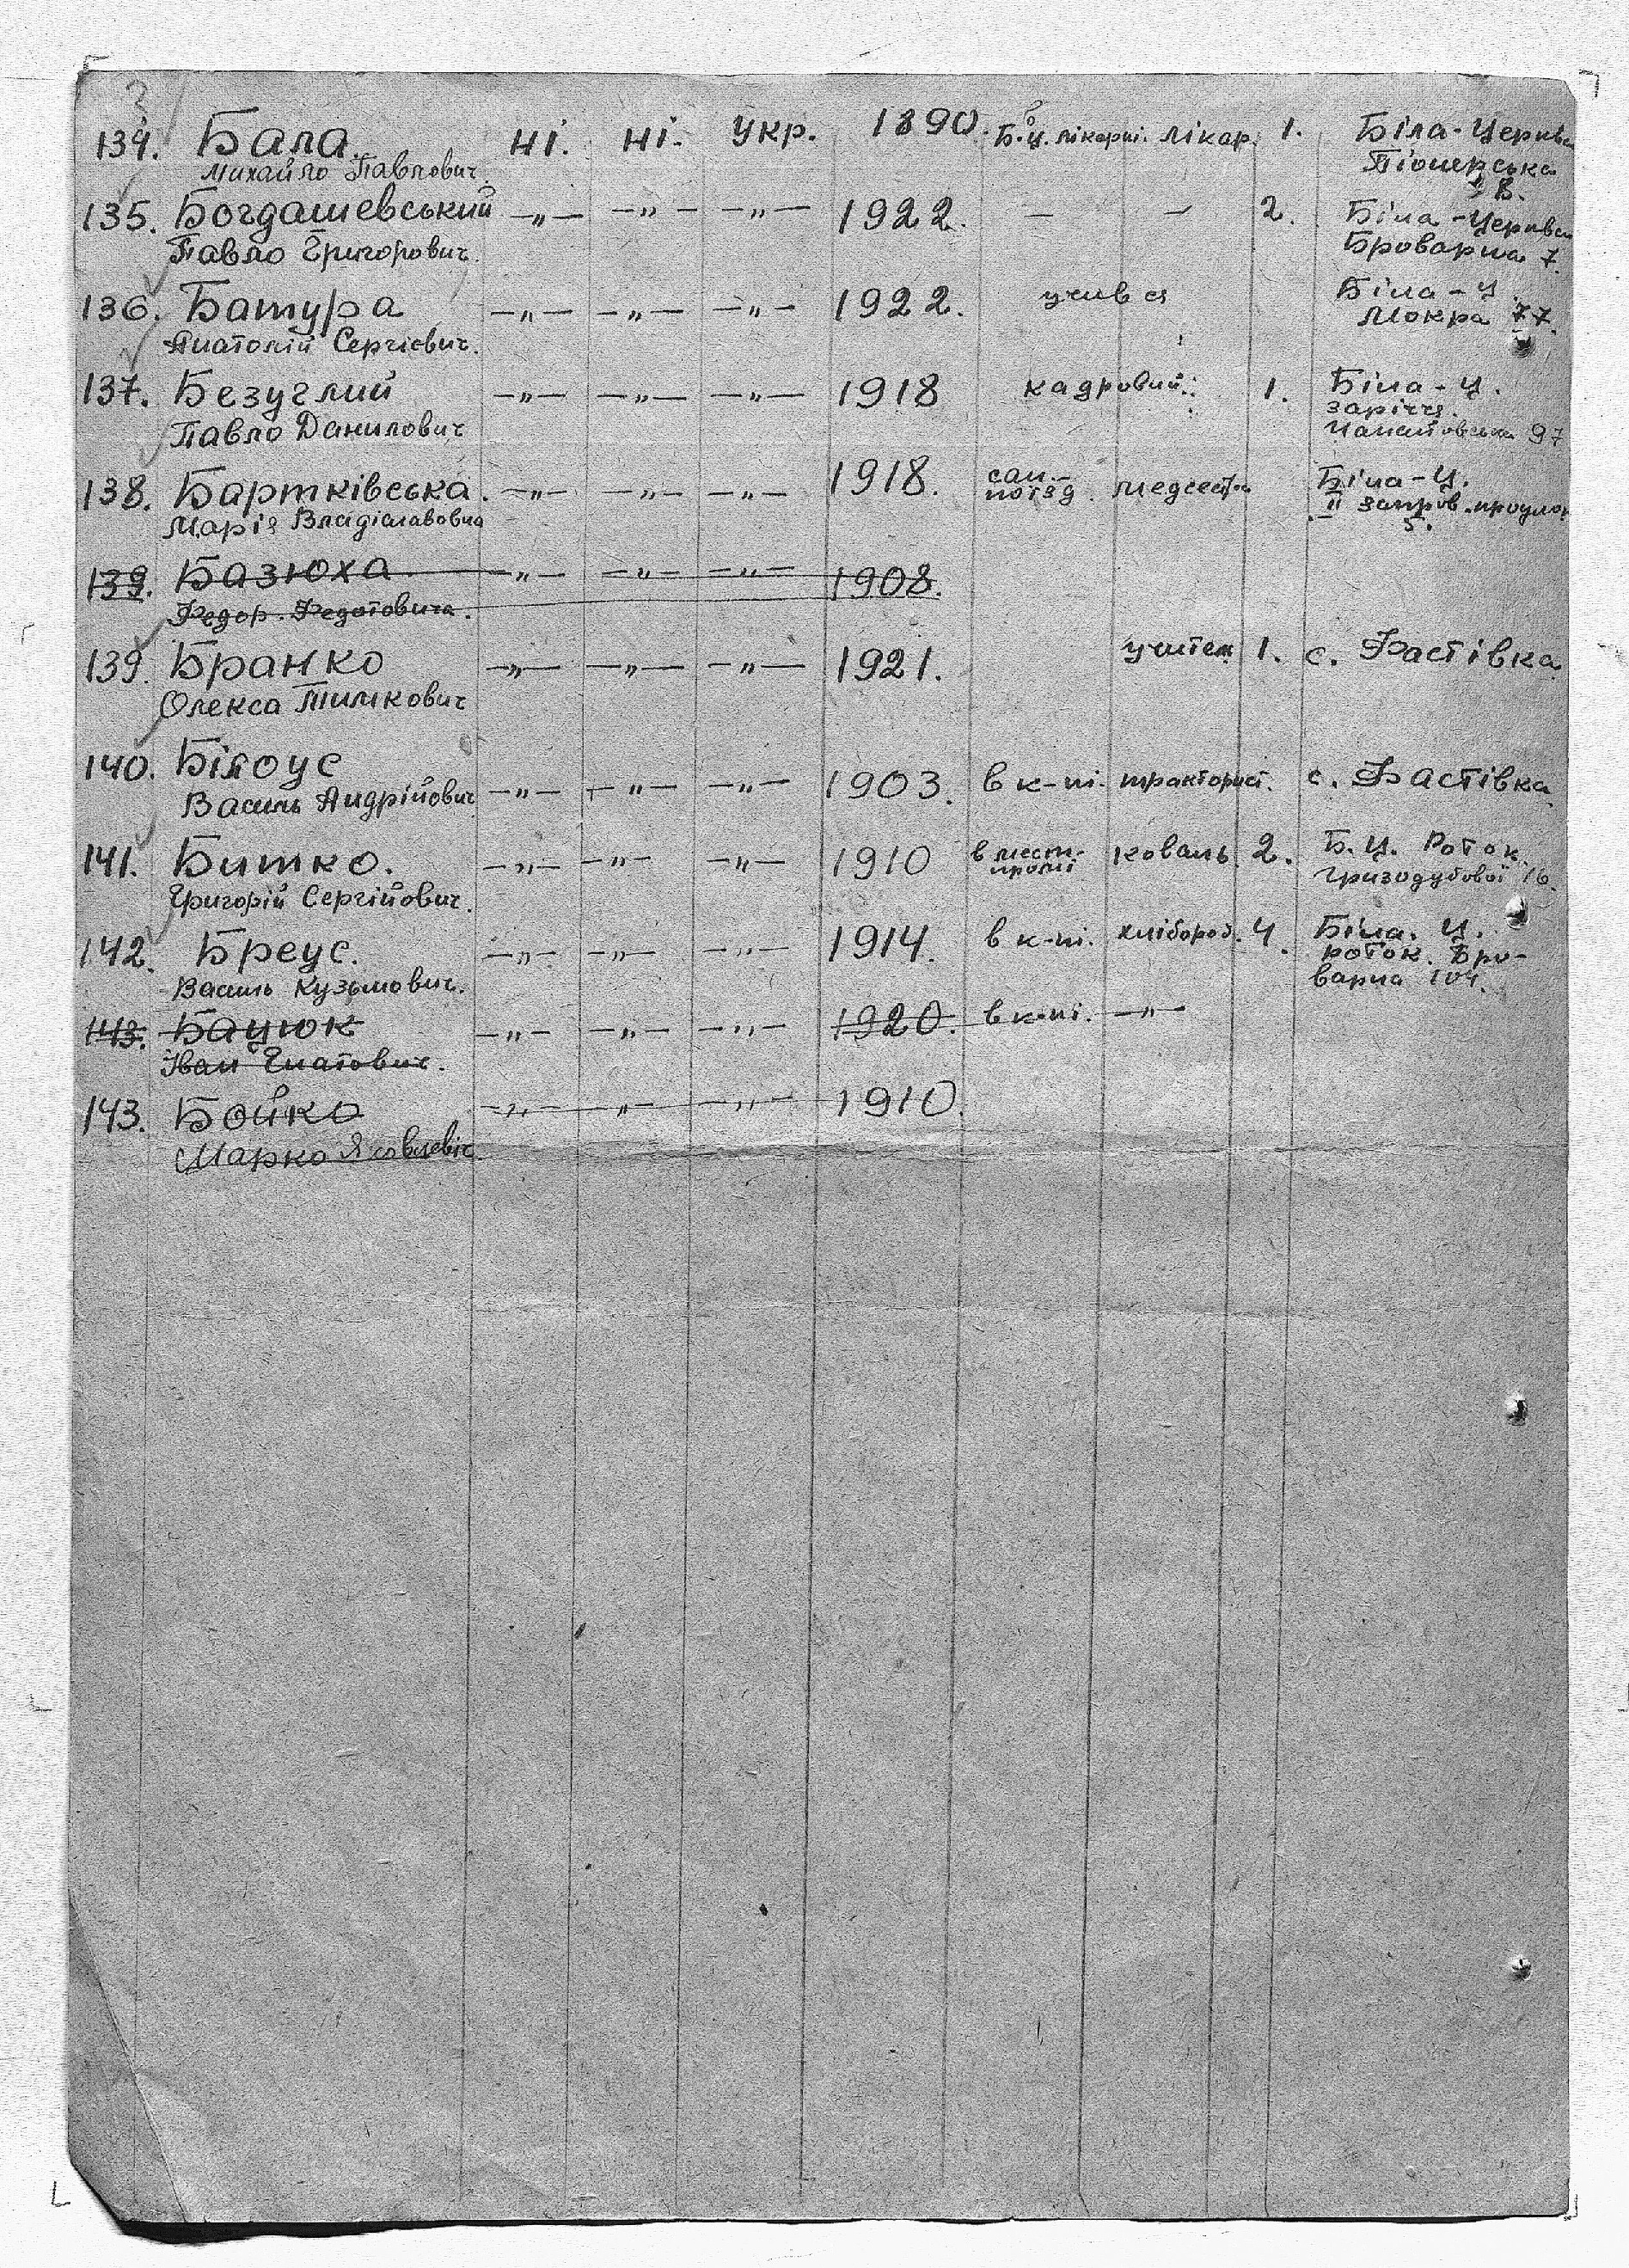 134. Бала. ні. ні. Укр. 1890. Б.Ц. лікарні. лікар. 1. Біла-Церква
Михайло Павлович. Піонерська
8.
135. Богдашевський -"- -"- -"- 1922. - - 2. Біла-Церква
Павло Григорович. Броварна 7.
136. Батура -"- -"- -"- 1922. учився Біла-Ц.
Анатолій Сергієвич. Мокра 77.
137. Безуглий -"- -"- -"- 1918 кадровий. 1. Біла-Ц.
Павло Данилович заріччя.
97
138. Бартківська. -"- -"- -"- 1918. сан.- поїзд. медсестра Біла-Ц.
Марія Владіславовна II запров. проулок
5.
139. Базюха -"- -"- -"- 1908.
Федор. Федотовича.
139. Бранко -"- -"- -"- 1921. учител 1. с. Фастівка
Олекса Тимкович
140. Білоус -"- -"- -"- 1903. в к-пі. тракторист. с. Фастівка
Василь Андрійович
141. Битко. -"- -"- -"- 1910 в мест-промі коваль. 2. Б.Ц. Роток.
Григорій Сергійович. Гризодубової 16.
142. Бреус. -"- -"- -"- 1914. в к-пі. хлібороб. 4. Біла. Ц.
Василь Кузьмович. роток. Бро-
варна 104.
143. Бацюк -"- -"- -"- 1920. в к-пі. -"-
Іван Гнатович.
143. Бойко -"- -"- -"- 1910.
Марко Яковлевіч